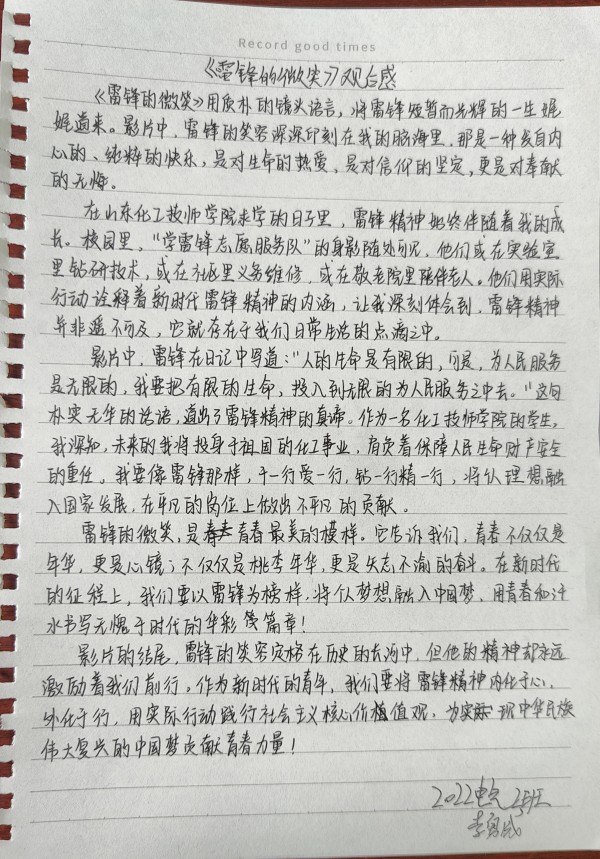 Record good times
《雷锋的微笑》观后感
《雷锋的微笑》用质朴的镜头语言，将雷锋短暂而光辉的一生娓
娓道来。影片中，雷锋的笑容深深印刻在我的脑海里，那是一种发自内
心的、纯粹的快乐，是对生命的热爱，是对信仰的坚定，更是对奉献
的无悔。
在山东化工技师学院求学的日子里，雷锋精神始终伴随着我的成
长。校园里，“学雷锋志愿服务队”的身影随处可见，他们或在实验室
里钻研技术，或在社区里义务维修，或在敬老院里陪伴老人。他们用实际
行动诠释着新时代雷锋精神的内涵，让我深刻体会到，雷锋精神
并非遥不可及，它就存在于我们日常生活的点滴之中。
影片中，雷锋在日记中写道：“人的生命是有限的，可是，为人民服务
是无限的，我要把有限的生命，投入到无限的为人民服务之中去。”这句
朴实无华的话语，道出了雷锋精神的真谛。作为一名化工技师学院的学生，
我深知，未来的我将投身于祖国的化工事业，肩负着保障人民生命财产安全
的重任。我要像雷锋那样，干一行爱一行，钻一行精一行，将个人理想融
入国家发展，在平凡的岗位上做出不平凡的贡献。
雷锋的微笑，是青春最美的模样。它告诉我们，青春不仅仅是
年华，更是心境；不仅仅是桃李年华，更是矢志不渝的奋斗。在新时代
的征程上，我们要以雷锋为榜样，将个人梦想融入中国梦，用青春和汗
水书写无愧于时代的华彩篇章！
影片的结尾，雷锋的笑容定格在历史的长河中，但他的精神却永远
激励着我们前行。作为新时代的青年，我们要将雷锋精神内化于心，
外化于行，用实际行动践行社会主义核心价值观，为实现中华民族
伟大复兴的中国梦贡献青春力量！
2022电气2班
李勇威